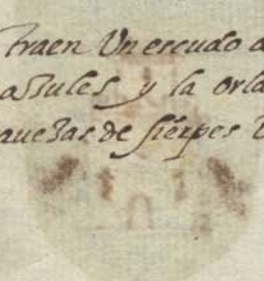 traen Un escudo d
azules y la orla
auezas de sierpes